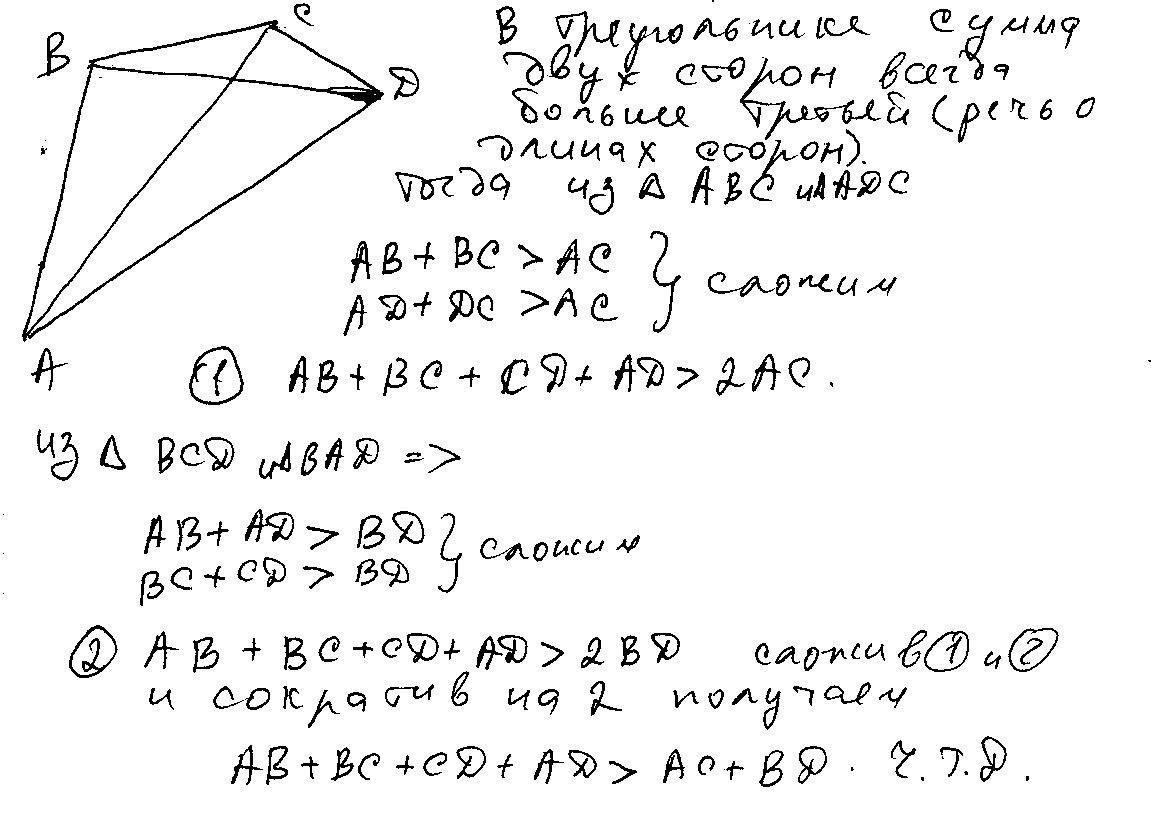 B
C
D
A
В треугольнике сумма
двух сторон всегда
больше третьей (речь о
длинах сторон).
тогда из Δ ABC и Δ ADC
AB + BC > AC
AD + DC > AC } сложим
① AB + BC + CD + AD > 2AC.
из Δ BCD и Δ BAD =>
AB + AD > BD
BC + CD > BD } сложим
② AB + BC + CD + AD > 2BD сложив ① и ②
и сократив на 2 получаем
AB + BC + CD + AD > AC + BD. Ч.Т.Д.